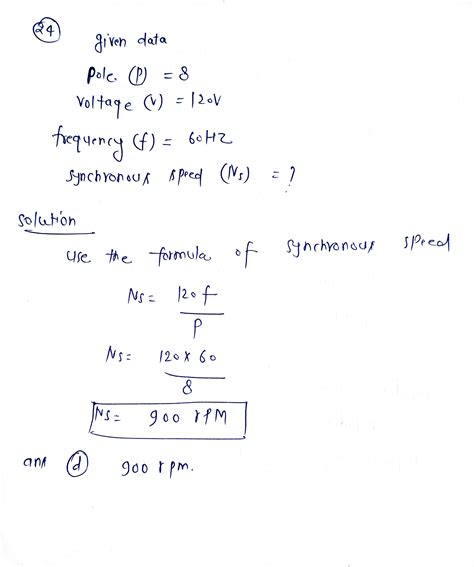 24
given data
Pole (P) = 8
Voltage (V) = 120V
frequency (f) = 60HZ
synchronous speed (Ns) = ?
solution
use the formula of synchronous speed
Ns = 120 f
P
Ns = 120 x 60
8
Ns = 900 rPM
ans (d) 900 rpm.